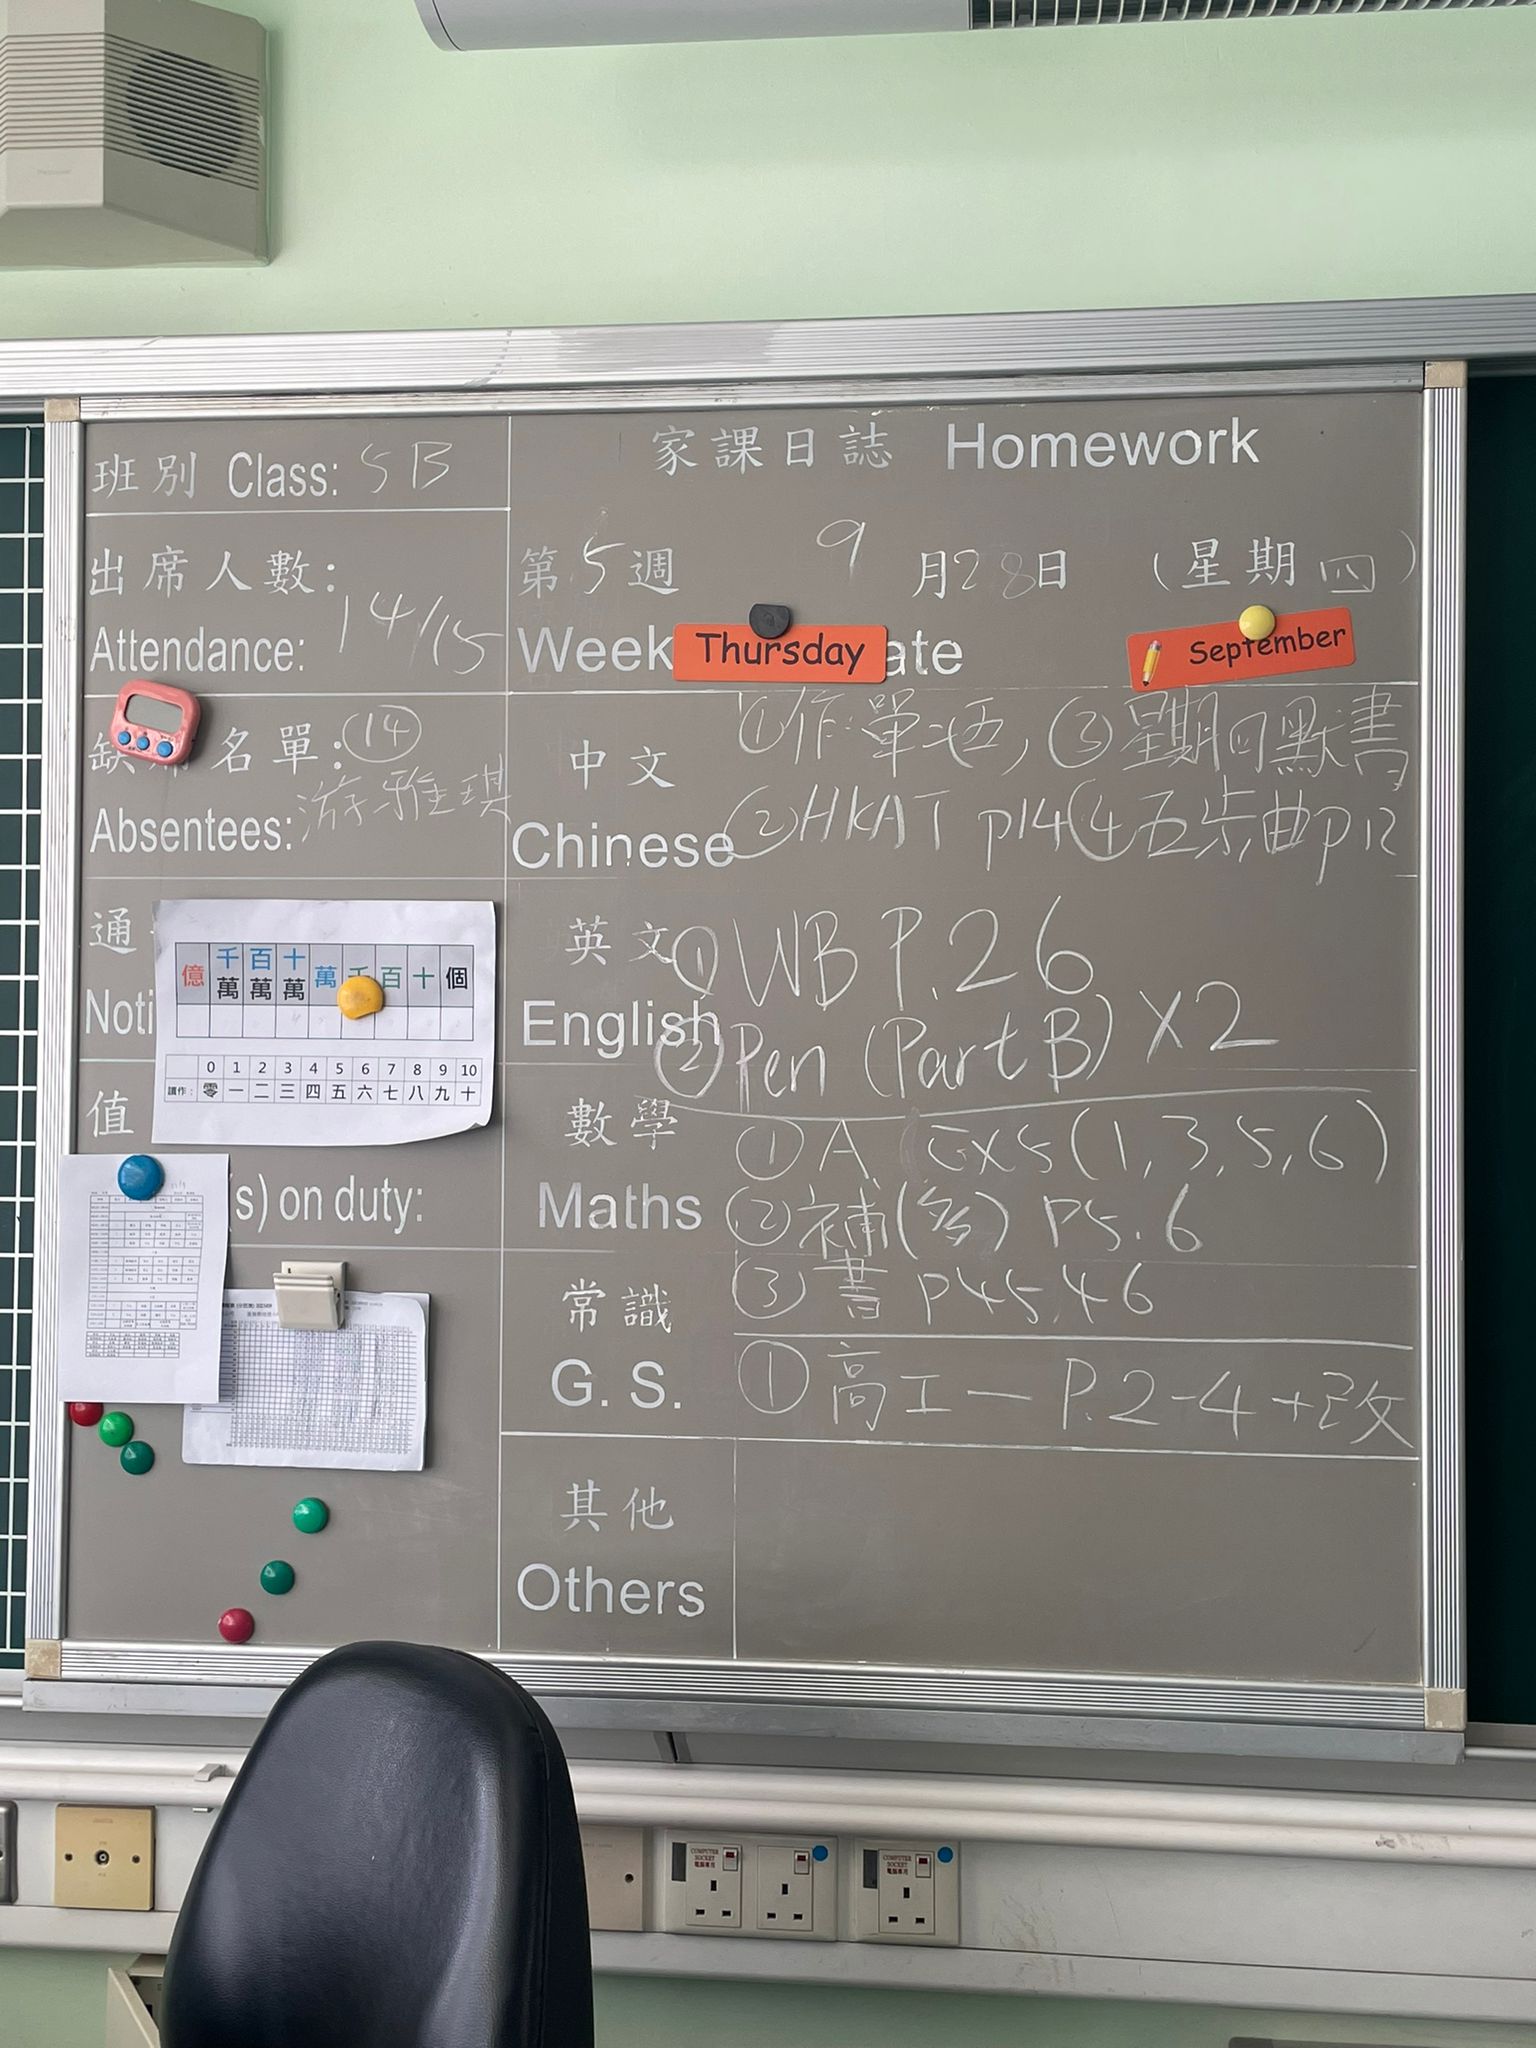 家課日誌 Homework
班別 Class: 5B
出席人數:
Attendance: 14/15
第5週 9月28日 (星期四)
Week Thursday ate September
名單: ⑭
Absentees: 游雅琪
通
Noti
億 千萬 百萬 十萬 萬 千 百 十 個
0 1 2 3 4 5 6 7 8 9 10
讀作: 零 一 二 三 四 五 六 七 八 九 十
值
s) on duty:
中文
Chinese
①作單元五, ③星期四默書
②HKAT p14 ④五步曲p12
英文
English
①WB P.26
②Pen (Part B) X2
數學
Maths
①A Ex5(1,3,5,6)
②補(多) P5.6
③書 P45,46
常識
G. S.
①高工一 P.2-4+改
其他
Others
COMPUTER SOCKET
電腦專用
COMPUTER SOCKET
電腦專用